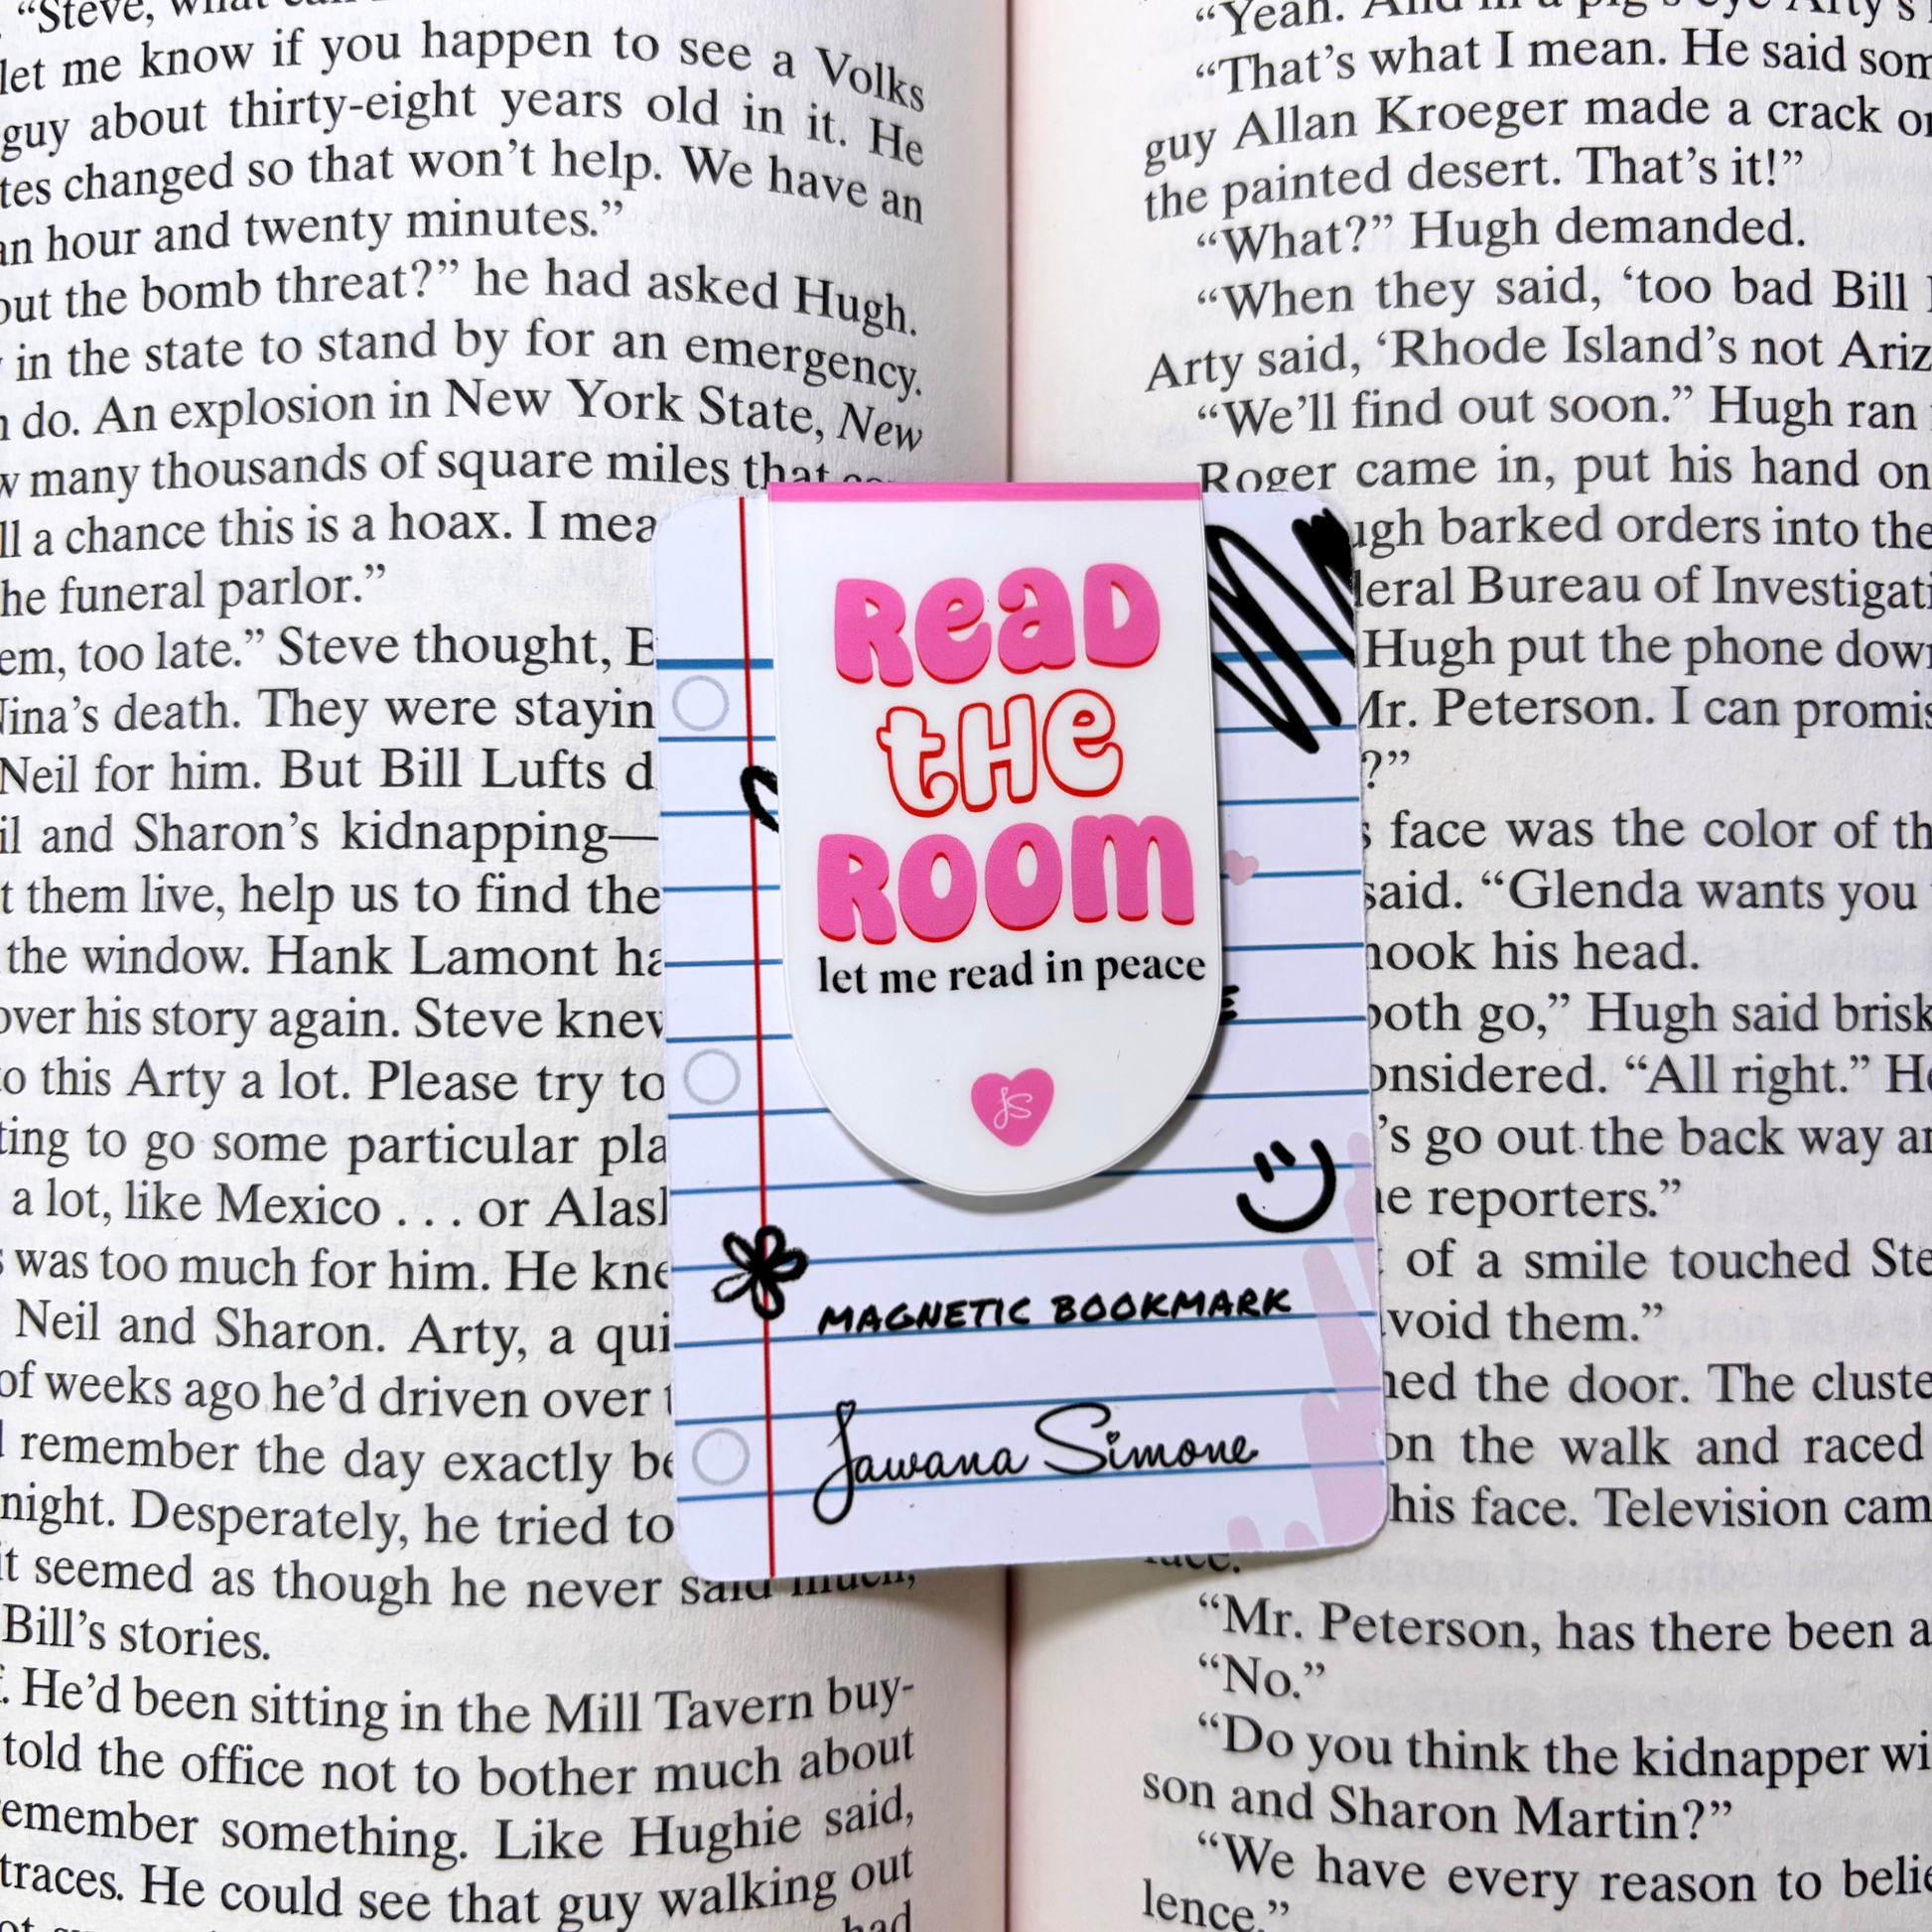 “Steve, what can
let me know if you happen to see a Volks
guy about thirty-eight years old in it. He
tes changed so that won’t help. We have an
an hour and twenty minutes.”
out the bomb threat?” he had asked Hugh.
in the state to stand by for an emergency.
do. An explosion in New York State, New
many thousands of square miles that
ll a chance this is a hoax. I mea
he funeral parlor.”
em, too late.” Steve thought, B
Nina’s death. They were stayin
Neil for him. But Bill Lufts d
il and Sharon’s kidnapping—
t them live, help us to find the
the window. Hank Lamont ha
over his story again. Steve knew
to this Arty a lot. Please try to
ting to go some particular pla
a lot, like Mexico . . . or Alask
was too much for him. He kne
Neil and Sharon. Arty, a qui
of weeks ago he’d driven over t
remember the day exactly be
night. Desperately, he tried to
it seemed as though he never said much,
Bill’s stories.
. He’d been sitting in the Mill Tavern buy-
told the office not to bother much about
emember something. Like Hughie said,
traces. He could see that guy walking out
had
READ
THE
ROOM
let me read in peace
JS
MAGNETIC BOOKMARK
Jawana Simone
“Yeah. And in a pig’s eye Arty’s
“That’s what I mean. He said som
guy Allan Kroeger made a crack o
the painted desert. That’s it!”
“What?” Hugh demanded.
“When they said, ‘too bad Bill
Arty said, ‘Rhode Island’s not Ariz
“We’ll find out soon.” Hugh ran
Roger came in, put his hand on
ugh barked orders into the
deral Bureau of Investigati
Hugh put the phone down
Mr. Peterson. I can promis
?”
s face was the color of th
said. “Glenda wants you
hook his head.
both go,” Hugh said brisk
onsidered. “All right.” He
’s go out the back way an
he reporters.”
of a smile touched Ste
avoid them.”
ned the door. The cluste
on the walk and raced
his face. Television cam
face.
“Mr. Peterson, has there been a
“No.”
“Do you think the kidnapper wi
son and Sharon Martin?”
“We have every reason to belie
lence.”